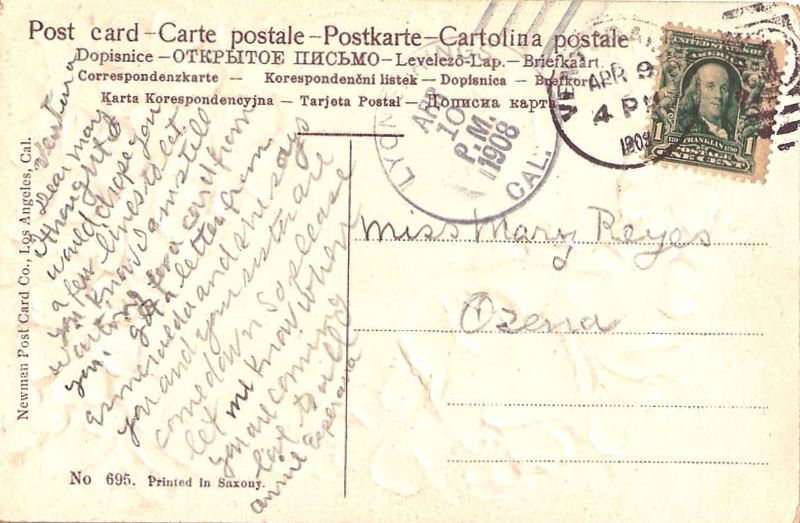 Post card – Carte postale – Postkarte – Cartolina postale
Dopisnice – ОТКРЫТОЕ ПИСЬМО – Levelező-Lap. – Briefkaart
Correspondenzkarte – Korespondenční listek – Dopisnica – Brefkort
Karta Korespondencyjna – Tarjeta Postal – Дописна карта
Ventura
Dear May
I thought I
would drope you
a few lines to let
you know I am still
waiting for a card from
you. I got a letter from
Esmeralda and she says
you and your sister are
come down So please
let me know when
you are coming
love to all
annie
APR
10
P.M.
1908
CAL.
APR 9
4 PM
1908
1
FRANKLIN
ONE CENT
Miss Mary Reyes
Ozena
Newman Post Card Co., Los Angeles, Cal.
No 695. Printed in Saxony.